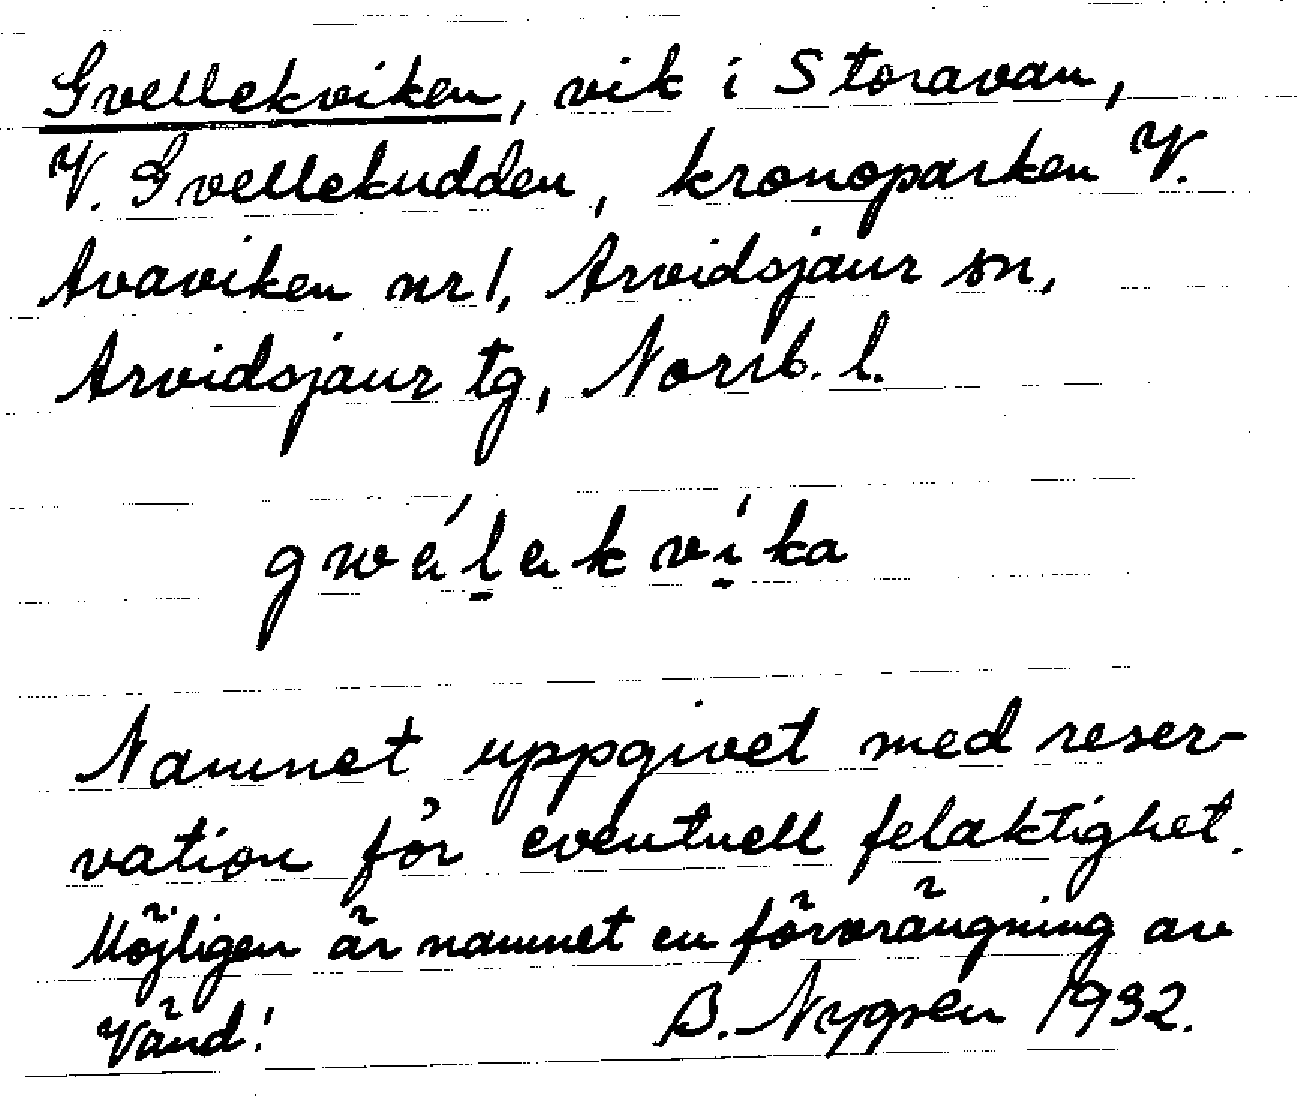 Gvellekviken, vik i Storavan,
V. Gvellekudden, kronoparken V.
Avaviken nr 1, Arvidsjaur sn,
Arvidsjaur tg, Norrb. l.
gwélekvíka
Namnet uppgivet med reser-
vation för eventuell felaktighet.
Möjligen är namnet en förvrängning av
Vänd! B. Nygren 1932.